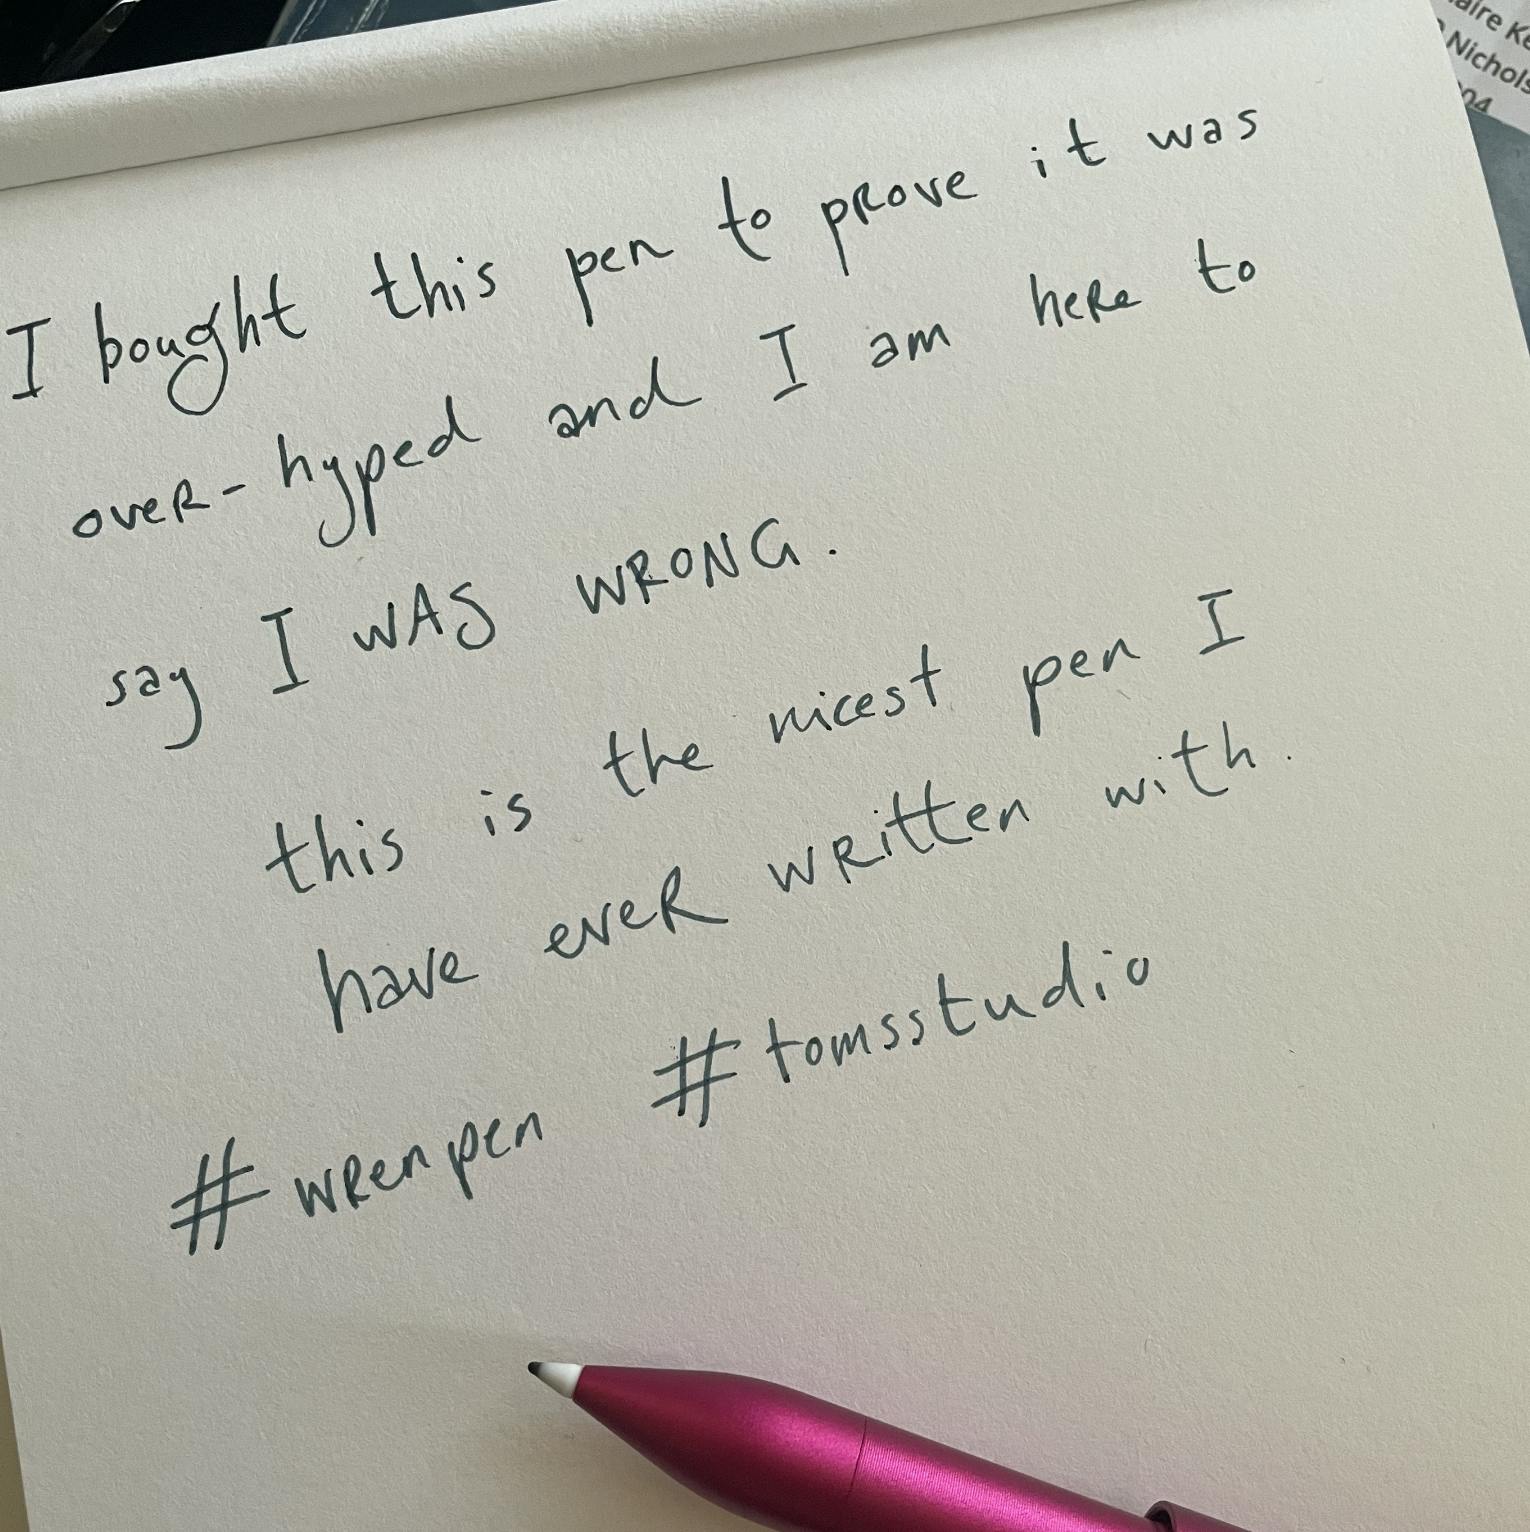 I bought this pen to prove it was
over-hyped and I am here to
say I WAS WRONG.
this is the nicest pen I
have ever written with.
#wrenpen #tomsstudio